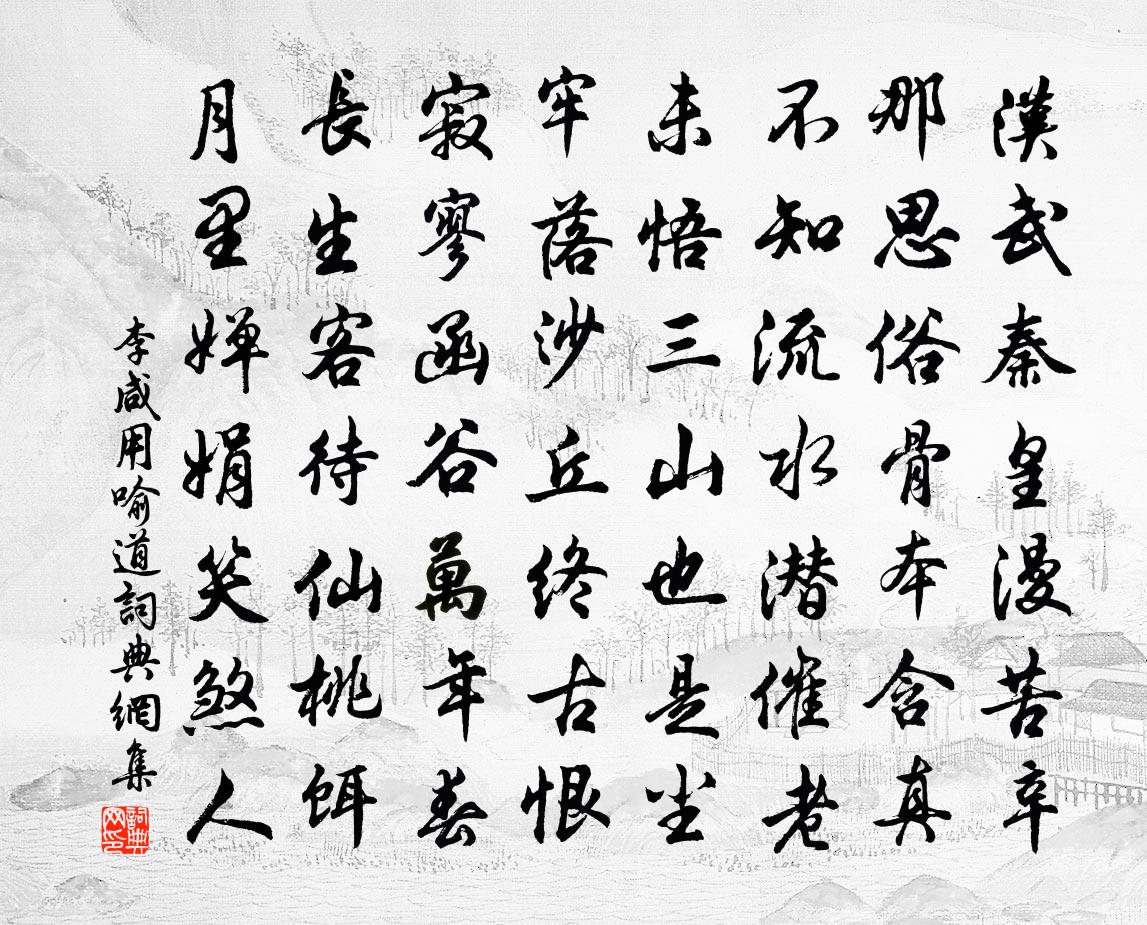 漢武秦皇漫苦辛
那思俗骨本含真
不知流水潜催老
未悟三山也是尘
牢落沙丘终古恨
寂寥函谷萬年春
長生客待仙桃餌
月里婵娟笑煞人
李咸用喻道詞典網集
詞典网印